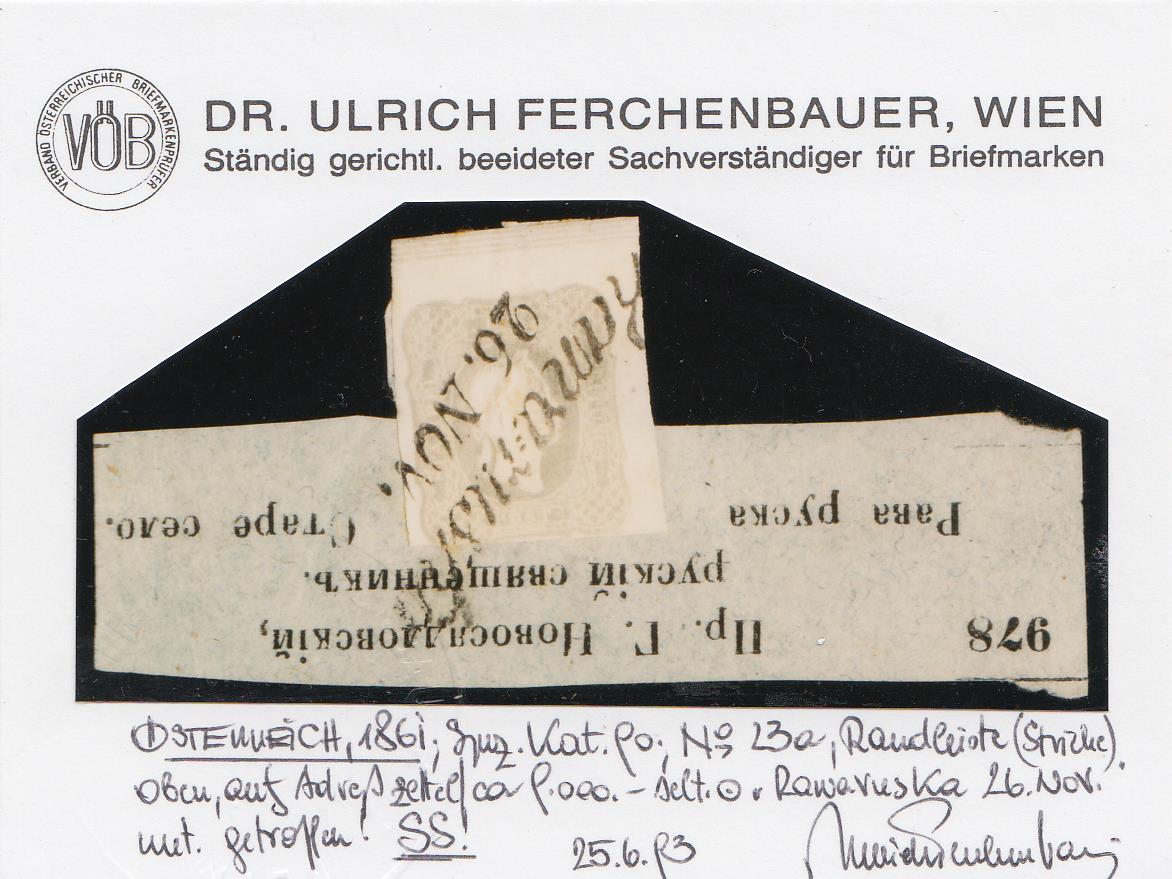 VERBAND ÖSTERREICHISCHER BRIEFMARKENPRÜFER
VÖB
DR. ULRICH FERCHENBAUER, WIEN
Ständig gerichtl. beeideter Sachverständiger für Briefmarken
26. NOV.
978
Пр. Г. Новосядовскій,
рускій священникъ.
Рава руска Старе село.
ÖSTERREICH, 1861; Kat. No 23a, Randleiste (Striche)
oben, auf Adreßzettel/ca - selt. Rawaruska 26. Nov.
getroffen! SS!
25.6.93